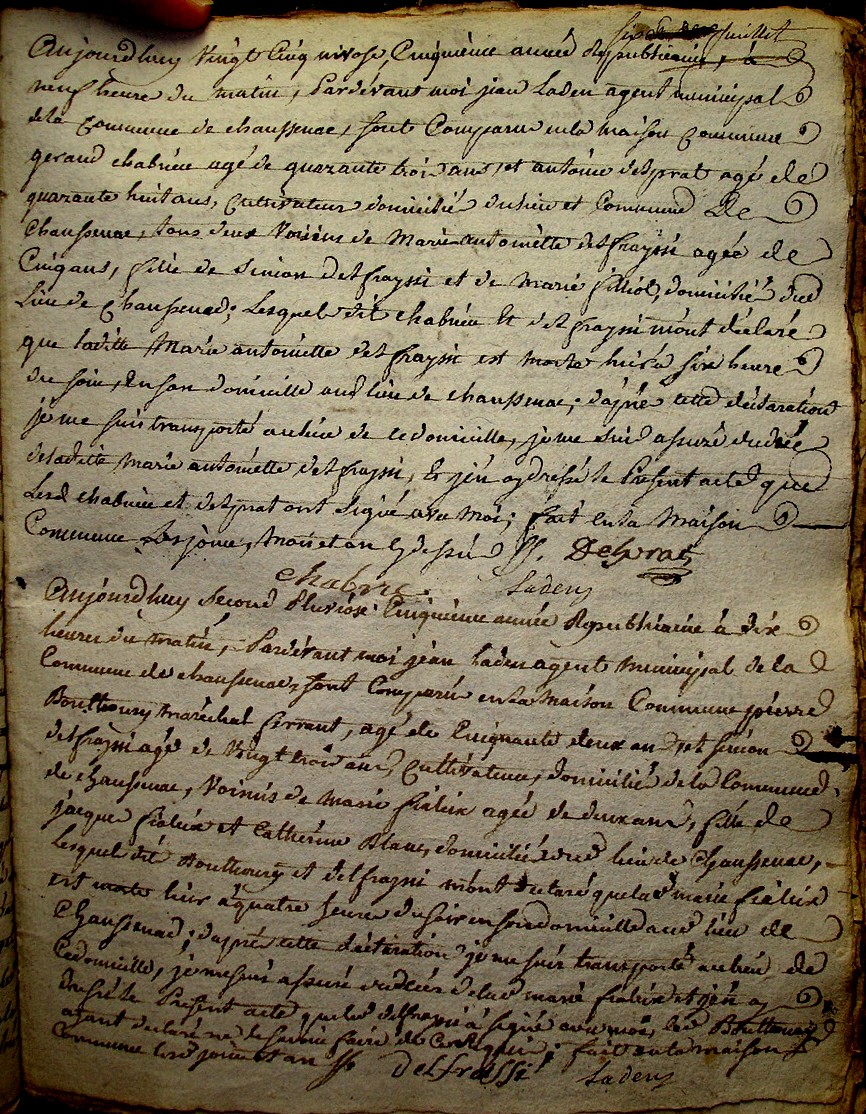 juillet
Aujourdhuy vingt cinq nivose, cinquième année Republicaine, à
neuf heure du matin, Pardevant moi jean Laden agent municipal
de la Commune de chaussenac, sont Comparu en la maison Commune
geraud chabriere agé de quarante trois ans, et antoine delprat agé de
quarante huit ans, Cultivateur domicilié du lieu et Commune de
Chaussenac, tous deux voisins de Marie antoinette delfrayssi agée de
Cinq ans, fille de Simion Delfrayssi et de Marie filliol, domicilié dud
Lieu de Chaussenac; Lesquel dit chabriere et delfrayssi mont déclaré
que laditte Marie antoinette delfrayssi est morte hier à six heure
du soir, En son domicille aud lieu de chaussenac; d'aprée cette déclaration
je me suis transporté au lieu de ce domicille, je me suis assuré du dée
de laditte Marie antoinette delfrayssi, Et j'en ay dressé le Present acte que
Lesd chabriere et delprat ont signé avec moi; fait en la Maison
Commune Les jour, mois et an cy dessus Delprat
chabrie. Ladeny
Aujourdhuy second Pluviose Cinquième année Republicaine à dix
heures du matin, Pardevant moi jean Laden agent municipal de la
Commune de chaussenac, sont Comparu en la maison Commune pierre
Bouthoury maréchal ferrant, agé de Cinquante deux an et simion
delfrayssi agé de vingt trois ans, Cultivateur, domicilié de la Commune
de chaussenac, voisins de Marie fialeix agée de deux ans, fille de
jacque fialeix et Catherine Blanc, domiciliée dud lieu de Chaussenac,
Lesquel dit Bouthoury et delfrayssi mont declaré que lad marie fialeix
est morte hier à quatre heure du soir en son domicille aud lieu de
Chaussenac; d'aprée cette déclaration je me suis transporté au lieu de
Ce domicille, je me suis assuré du décés de lad marie fialeix et j'en ay
Dressé le Present acte que led delfrayssi à signé avec moi, led Bouthoury
ayant declaré ne le savoir faire de Ce Requis; fait en la maison
Commune lesd jour et an delfraissi Ladeny